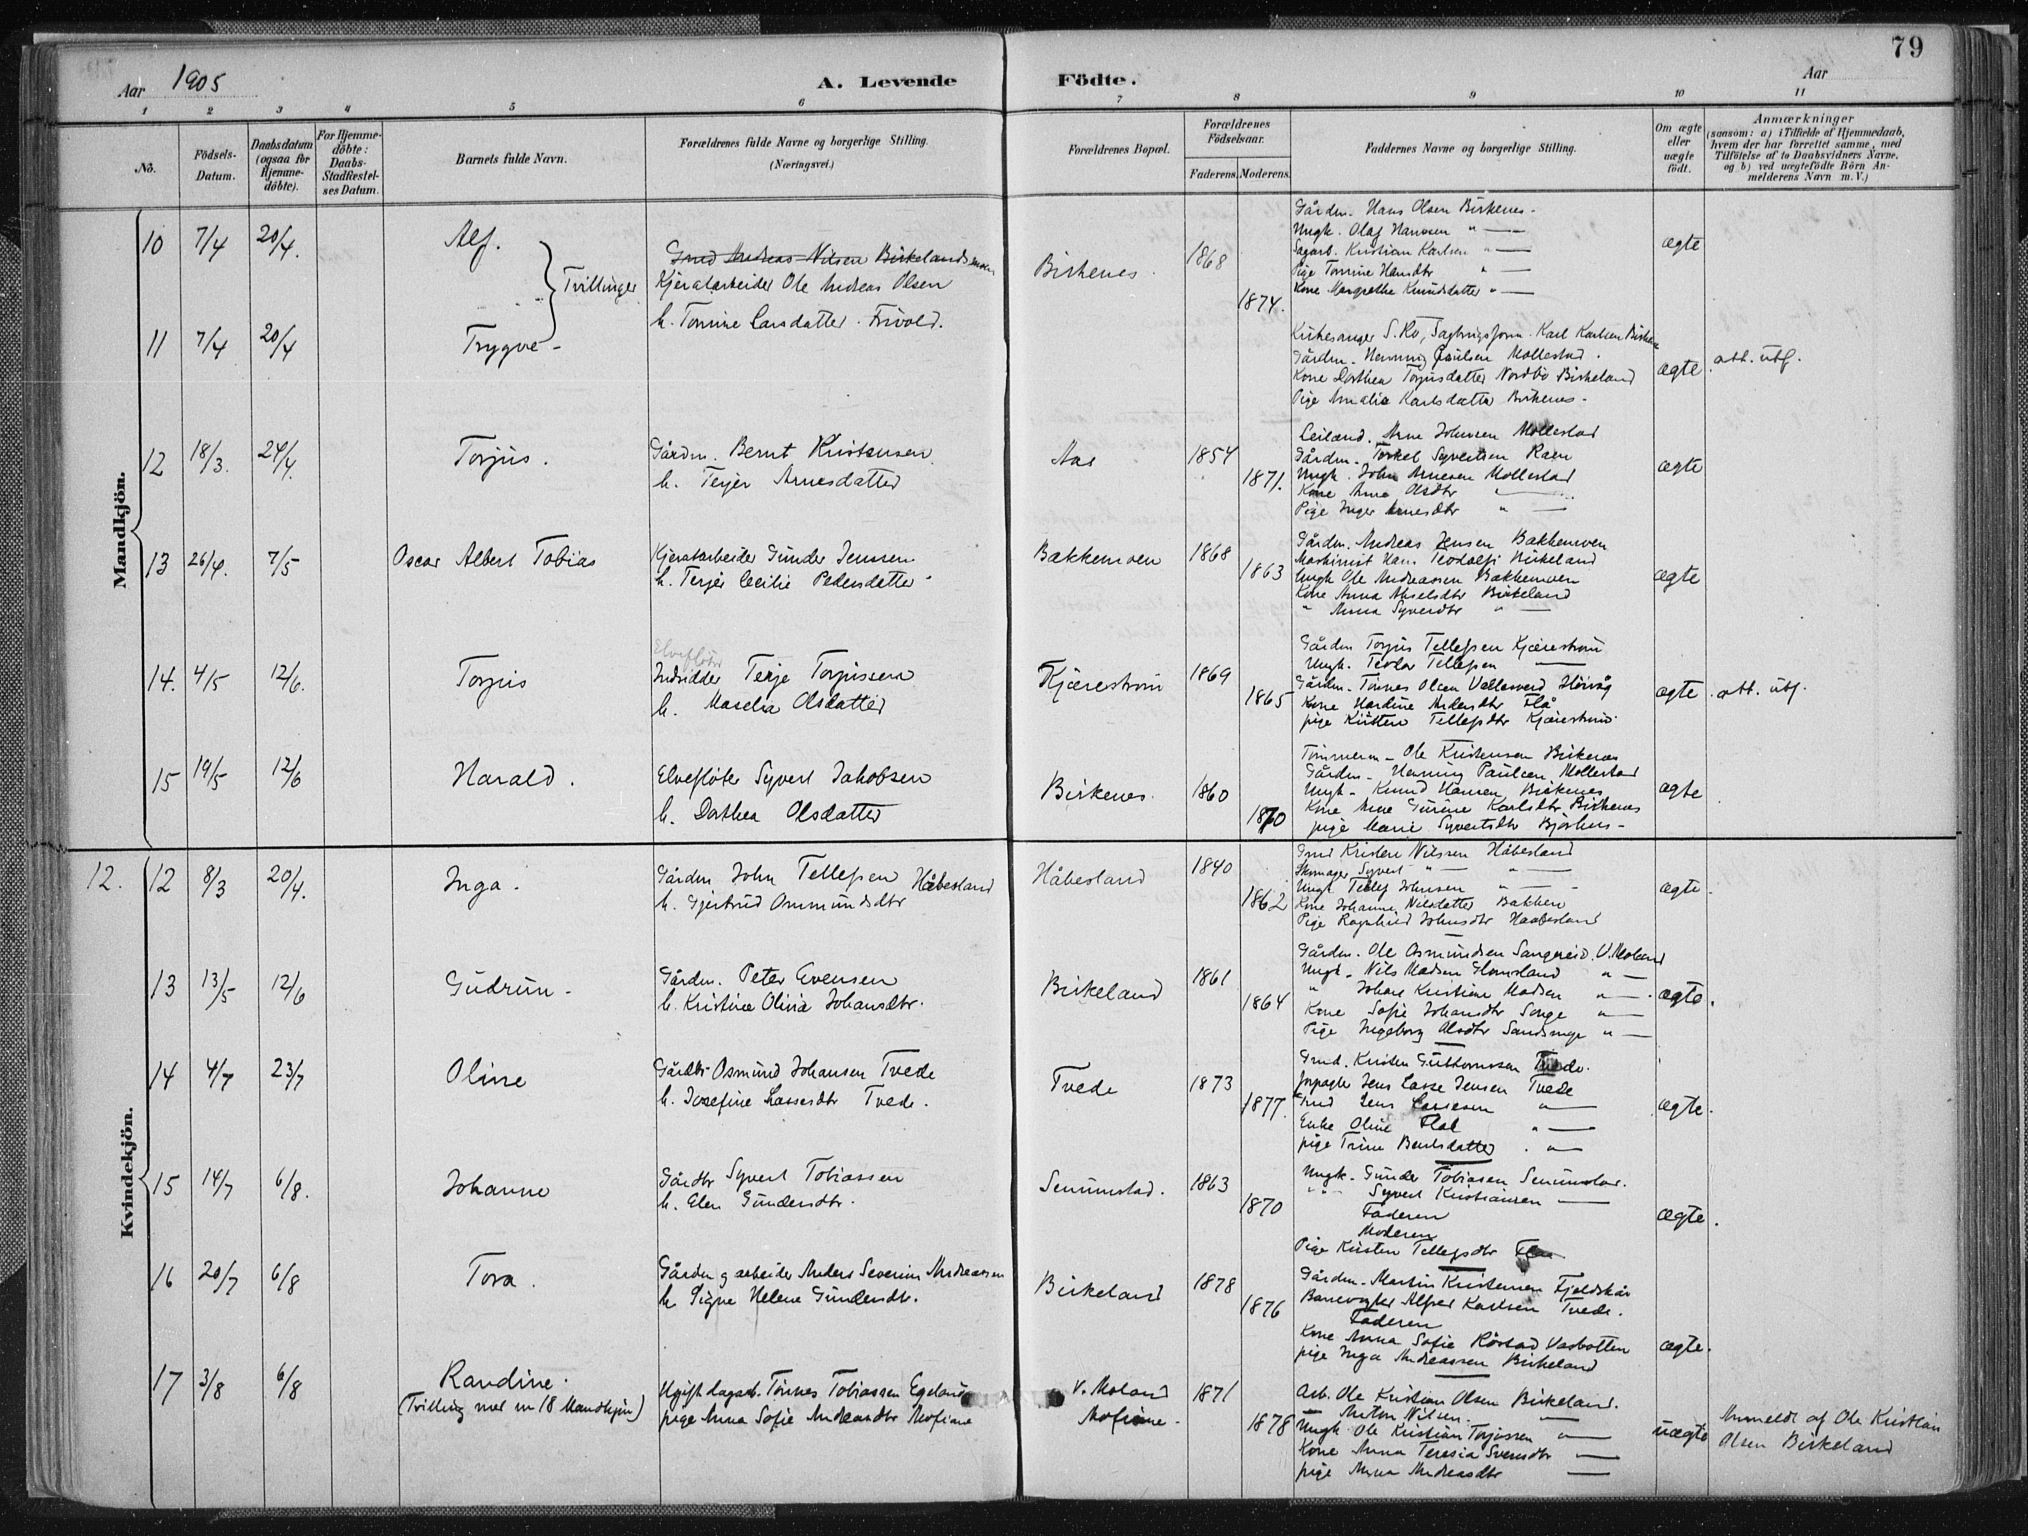 79
Aar 1905
A. Levende Födte.
Aar
1 2 3 4 5 6 7 8 9 10 11
No.
Födsels-Datum.
Daabsdatum (ogsaa for Hjemmedöbte).
For Hjemmedöbte: Daabs-Stadfæstelses Datum.
Barnets fulde Navn.
Forældrenes fulde Navne og borgerlige Stilling.
(Næringsvei.)
Forældrenes Bopæl.
Forældrenes Födselsaar.
Faderens. Moderens.
Faddernes Navne og borgerlige Stilling.
Om ægte eller uægte födt.
Anmærkninger
(saasom: a) i Tilfælde af Hjemmedaab,
hvem der har forrettet samme, med
Tilföielse af to Daabsvidners Navne,
og b) ved uægtefödte Börn An-
melderens Navn m. V.)
Mandkjön.
10 7/4 20/4. Alf.
Tvillinger
Gmd Andreas Nilsen Birkelandsmoen
Kjeratarbeider Ole Andreas Olsen
h. Tomine Larsdatter Frivold.
Birkenes. 1868 1874.
Gårdm. Hans Olsen Birkenes
Ungk. Olaf Hansen " —
Sagarb. Kristian Karlsen " —
Pige Tomine Hansdtr " —
Kone Margrethe Knudsdatter " —
ægte
11 7/4 20/4 Trygve
Kirkesanger S. Ro, Sagbrugsform. Karl Karlsen Birkenes
Gårdm. Henning Paulsen Mollestad.
Kone Dorthea Torjusdatter Nordbö Birkeland
Pige Amalie Karlsdatter Birkenes.
ægte att. utf.
12 18/3. 24/4. Torjus.
Gårdm. Bernt Kristensen
h. Terjer Arnesdatter
Aas 1854 1871.
Leilænd. Arne Johnsen Mollestad
Gårdm. Torkel Syvertsen Raen
Ungk. John Arnesen Mollestad
Kone Anna Olsdtr " —
Pige Inger Arnesdtr " —
ægte
13 26/4. 7/5 Oscar Albert Tobias
Kjeratarbeider Gunder Jenssen
h. Terjer Cecilie Pedersdatter
Bakkemoen 1868 1863
Gårdm. Andreas Jensen Bakkemoen
Maskinist Hans Birkeland
Ungk Ole Andreassen Bakkemoen
Kone Anna Akselsdtr Birkeland
" Anna Syvertdtr " —
ægte
14. 4/5 12/6. Torjus
Elvefløter
Indridder Terje Torjussen
h. Maselia Olsdatter
Kjærestrøm 1869 1865
Gårdm Torjus Tellefsen Kjærestrøm
Ungk. Teodor Tellefsen —
Gårdm. Tönnes Olsen Vallesverd Hövåg
Kone Nardine Andersdtr Flå
pige Kristen Tellefsdtr Kjærestrøm
ægte att. utf.
15 19/5 12/6 Harald.
Elvefløter Syvert Jakobsen
h. Dorthea Olsdatter
Birkenes 1860 1870
Tömmerm. Ole Kristensen Birkenes
Gårdm. Henning Paulsen Mollestad
Ungk. Knud Hansen Birkenes
Kone Anne Gurine Karlsdtr Birkenes
pige Marie Syvertsdtr Bjorhus
ægte
Kvindekjön.
12. 12 8/3 20/4. Inga.
Gårdm John Tellefsen Håbesland
h. Gjertrud Ommundsdtr
Håbesland 1840 1862
Gmd Kristen Nilsen Håbesland
Skomager Syvert " — " —
Ungk Tellef Johnsen " —
Kone Johanne Nilsdatter Bakken
Pige Ragnhild Johnsdtr Haabesland
ægte
13 13/5 12/6 Gudrun.
Gårdm. Peter Evensen
h. Kristine Olivia Johansdtr.
Birkeland 1861 1864
Gårdm. Ole Osmundsen Sangereid V. Moland
Ungk. Nils Madsen Glomsland " —
" Johan Kristian Madsen " —
Kone Sofie Johansdtr Songe " —
Pige Ingeborg Olsdtr " —
ægte.
14 4/7 23/7 Oline
Gårdbr Osmund Johansen Tvede
h. Josefine Lassesdtr Tvede.
Tvede 1873 1877.
Gmd. Kristen Guttormssen Tvede.
forpagter Jens Lasse Jensen Tvede
Gmd Jens Lassesen " —
Enke Oline Flaa " —
pige Trine Berntsdatter " —
ægte.
15 14/7 6/8. Johanne
Gårdbr Syvert Tobiassen
h. Elen Gundersdtr.
Senumstad. 1863 1870
Ungk. Gunder Tobiasen Senumstad.
" " Syvert Kristiansen —
Faderen
Moderen
Pige Kirsten Tellefsdtr Flaa
ægte.
16 20/7 6/8 Tora.
Gårdm g arbeider Anders Severin Andreassen
h Signe Helene Gundersdtr.
Birkeland 1878 1876
Gårdm. Martin Kristensen Fjeldskår
Banevogter Alfred Karlsen Tvede.
Faderen
Kone Anna Sofie Røstad Vasbotten
pige Inga Andreassen Birkeland
ægte.
17 3/8 6/8 Randine.
(Tvilling med no 18 Mandkjön)
Ugift dagarb. Tönnes Tobiassen Egeland
pige Anna Sofie Andreasdtr Mofiane
V. Moland
Mofiane. 1871 1878
Arb. Ole Kristian Olsen Birkeland.
" Anton Nilsen —
Ungk. Ole Kristian Torjussen " —
Kone Anna Teresia Svensdtr —
pige Anna Andreasdtr —
uægte
Anmeldt af Ole Kristian
Olsen Birkeland